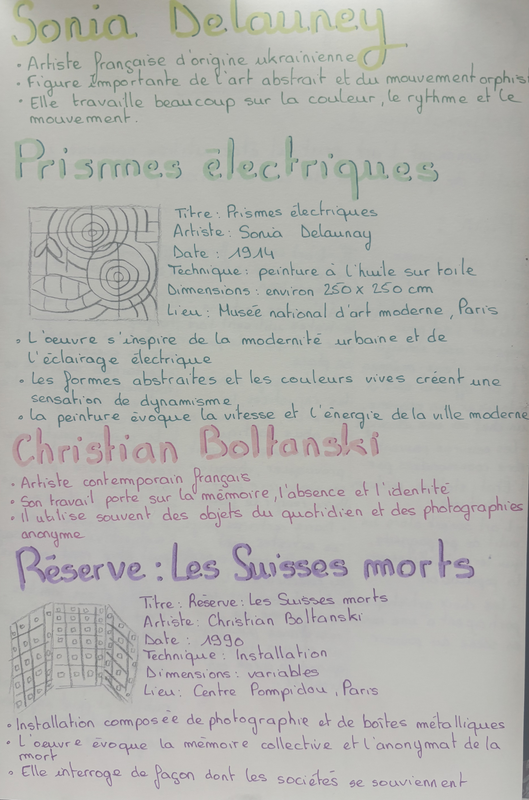 Sonia Delauney
• Artiste française d'origine ukrainienne
• Figure importante de l'art abstrait et du mouvement orphis
• Elle travaille beaucoup sur la couleur, le rythme et le
mouvement.
Prismes électriques
Titre : Prismes électriques
Artiste : Sonia Delaunay
Date : 1914
Technique : peinture à l'huile sur toile
Dimensions : environ 250 x 250 cm
Lieu : Musée national d'art moderne, Paris
• L'oeuvre s'inspire de la modernité urbaine et de
l'éclairage électrique
• Les formes abstraites et les couleurs vives créent une
sensation de dynamisme
• la peinture évoque la vitesse et l'énergie de la ville moderne
Christian Boltanski
• Artiste contemporain français
• Son travail porte sur la mémoire, l'absence et l'identité
• il utilise souvent des objets du quotidien et des photographies
anonyme
Réserve : Les Suisses morts
Titre : Réserve : Les Suisses morts
Artiste : Christian Boltanski
Date : 1990
Technique : Installation
Dimensions : variables
Lieu : Centre Pompidou, Paris
• Installation composée de photographie et de boîtes métalliques
• L'oeuvre évoque la mémoire collective et l'anonymat de la
mort
• Elle interroge de façon dont les sociétés se souviennent